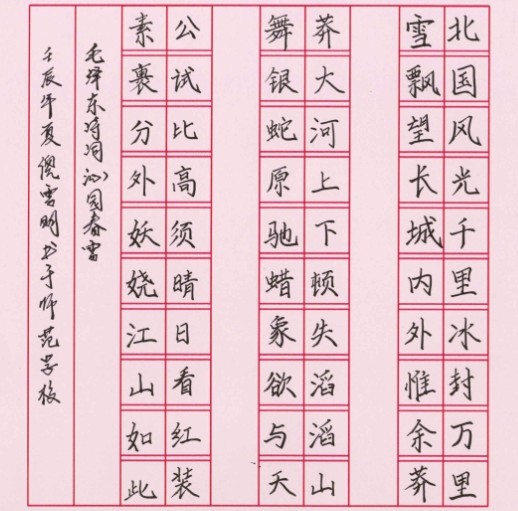 北国风光千里冰封万里
雪飘望长城内外惟余莽
莽大河上下顿失滔滔山
舞银蛇原驰蜡象欲与天
公试比高须晴日看红装
素裹分外妖娆江山如此
毛泽东诗词沁园春雪
壬辰年夏倪雪明书于师范学校